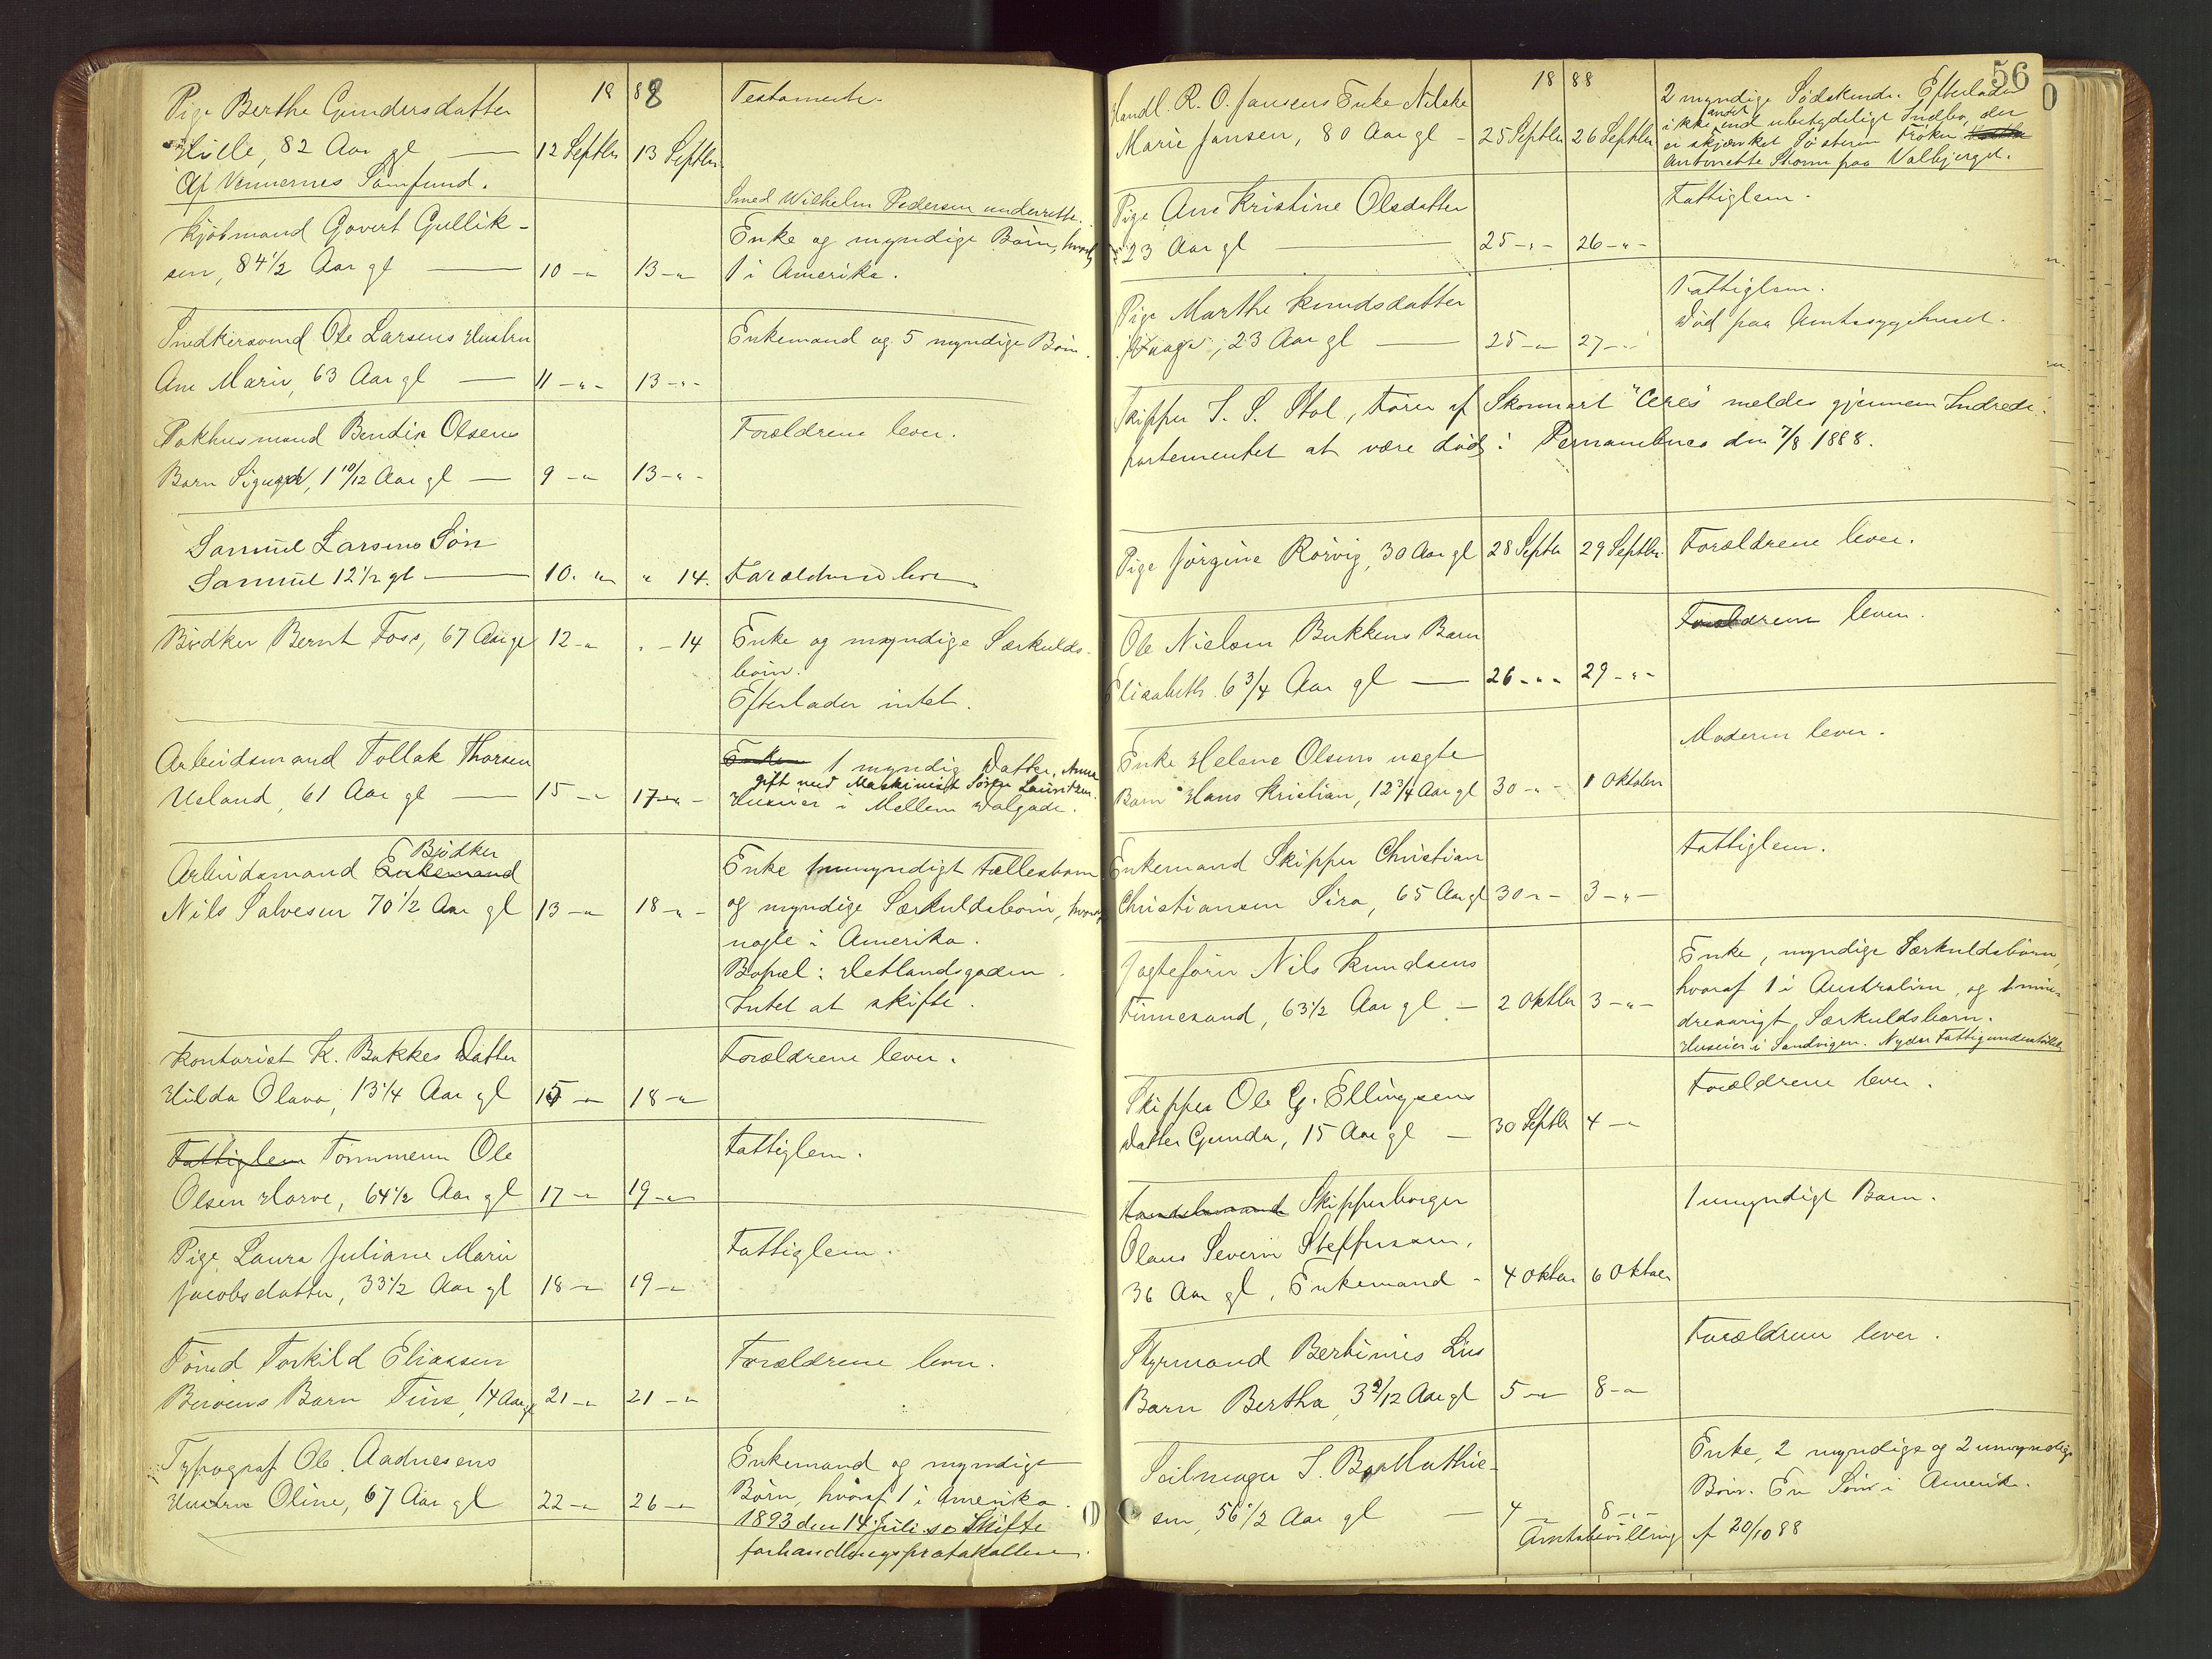 18 88
Pige Berthe Gundersdatter
Hille, 82 Aar gl — 12 Septbr 13 Septbr
Testamente.
Af Vennernes Samfund.
Smed Wilhelm Pedersen underrette.
Kjøbmand Govert Gullik-
sen, 84 1/2 Aar gl — 10 -"- 13 -"-
Enke og myndige Børn, hvoraf
1 i Amerika.
Snedkersvend Ole Larsens Hustru
Ane Marie, 63 Aar gl — 11 -"- 13 -"-
Enkemand og 5 myndige Børn.
Pakhusmand Bendix Olsens
Barn Sigurd, 1 10/12 Aar gl — 9 -"- 13 -"-
Forældrene lever.
Samuel Larsens Søn
Samuel 12 1/2 gl — 10. " " 14. Forældrene leve.
Bødker Bernt Foss, 67 Aar gl 12 -"- " - 14
Enke og myndige Særkulds-
børn.
Efterlader intet.
Arbeidsmand Tollak Thorsen
Ueland, 61 Aar gl — 15 -"- 17 -"-
Enke 1 myndig Datter, Anna
gift med Maskinist Søren Lauritzen.
Huseier i Mellem Dalgade.
Bødker
Arbeidsmand Enkemand
Nils Salvesen 70 1/2 Aar gl 13 -"- 18 -"-
Enke 1 umyndigt Fællesbarn
og myndige Særkuldsbørn, hvoraf
nogle i Amerika.
Bopæl: Hetlandsgaden.
Intet at skifte.
Kontorist K. Bakkes Datter
Hilda Olava, 13 1/4 Aar gl 15 -"- 18 -"-
Forældrene lever.
Fattiglem Tømmerm Ole
Olsen Horve, 64 1/2 Aar gl 17 -"- 19 -"-
Fattiglem.
Pige Laura Juliane Marie
Jacobsdatter, 33 1/2 Aar gl 18 -"- 19 -"-
Fattiglem.
Tømd Torkild Eliassen
Barn Tine, 14 Aar gl 21 -"- 21 -"-
Forældrene lever.
Typograf Ole Aadnesens
Hustru Oline, 67 Aar gl 22 -"- 26 -"-
Enkemand og myndige
Børn, hvoraf 1 i Amerika.
1893 den 14 Juli se Skifte
forhandlingsprotokollen.
56
18 88
Handl. R. O. Jansens Enke Nilske
Marie Jansen, 80 Aar gl - 25 Septbr 26 Septbr
2 myndige Sødskende. Efterlader
andet
ikke end ubetydeligt Indbo, der
er skjænket Søsteren Frøken
Antonette Storm paa Valbjerget.
Pige Ane Kristine Olsdatter
23 Aar gl — 25 -"- 26 -"-
Fattiglem.
Pige Marthe Knudsdatter
23 Aar gl — 25 -"- 27 -"-
Fattiglem.
Død paa Amtssygehuset.
Skipper S. S. Stol, Fører af Skonnert "Ceres" meldes gjennem Indrede-
partementet at være død i Pernambuco den 7/8 1888.
Pige Jørgine Rørvig, 30 Aar gl 28 Septbr 29 Septbr
Forældrene lever.
Ole Nielsen Bukkens Barn
Elisabeth 6 3/4 Aar gl — 26 -"- 29 -"-
Forældrene lever.
Enke Helene Olsens uægte
Barn Hans Kristian, 12 3/4 Aar gl 30 -"- 1 Oktober
Moderen lever.
Enkemand Skipper Christian
Christiansen Sira, 65 Aar gl 30 -"- 3 -"-
Fattiglem.
Jagtefører Nils Knudsens
Finnesand, 63 1/2 Aar gl — 2 Oktbr 3 -"-
Enke, myndige Særkuldsbørn,
hvoraf 1 i Australien, og 1 min-
dreaarigt Særkuldsbarn.
Huseier i Sandvigen. Nyder Fattigunderstøttelse
Skipper Ole G. Ellingsens
Datter Gunda, 15 Aar gl — 30 Septbr 4 -"-
Forældrene lever.
Handelsmand Skipperborger
Olaus Severin Steffensen,
36 Aar gl, Enkemand - 4 Oktbr 6 Oktber
1 umyndigt Barn.
Styrmand Bertinius Lies
Barn Bertha, 3 9/12 Aar gl 5 -"- 8 -"-
Forældrene lever.
Seilmager S. B. Mathie-
sen, 56 1/2 Aar gl — 4 8 -"-
Enke, 2 myndige og 2 umyndige
Børn. En Søn i Amerika.
Amtsbevilling af 20/10 88